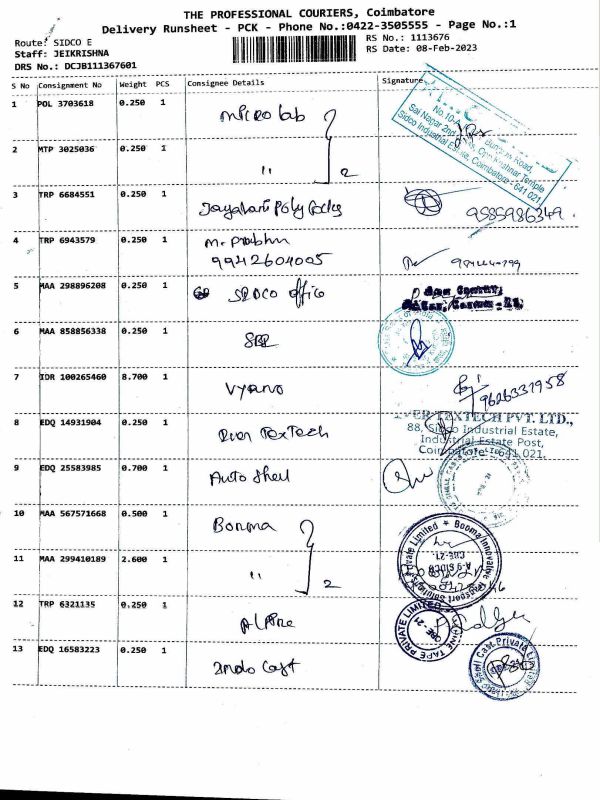 THE PROFESSIONAL COURIERS, Coimbatore
Delivery Runsheet - PCK - Phone No.:0422-3505555 - Page No.:1
Route: SIDCO E
RS No.: 1113676
Staff: JEIKRISHNA
RS Date: 08-Feb-2023
DRS No.: DCJB111367601
S No Consignment No Weight PCS Consignee Details Signature
1 POL 3703618 0.250 1 Micro lab
No.10-
Sai Nagar 2nd
Sidco Industrial Estate, Coimbatore - 641 021
2 MTP 3025036 0.250 1 " 2
3 TRP 6684551 0.250 1 9585986349
4 TRP 6943579 0.250 1 Mr Prabhu
9942604005
5 MAA 298896208 0.250 1 SIDCO office
6 MAA 858856338 0.250 1
7 IDR 100265460 8.700 1 Vyano 9626331958
8 EDQ 14931904 0.250 1 TexTech
TEXTECH PVT. LTD.,
88, Sidco Industrial Estate,
Industrial Estate Post,
Coimbatore - 641 021.
9 EDQ 25583985 0.700 1 Auto Shell
10 MAA 567571668 0.500 1 Booma
11 MAA 299410189 2.600 1 " 2
12 TRP 6321135 0.250 1 Alpine
13 EDQ 16583223 0.250 1 Indo Cast